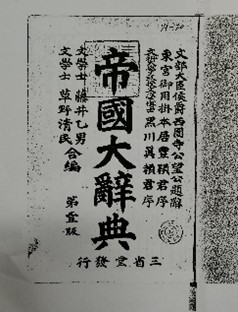 文部大臣侯爵西園寺公望公題辭
東宮御用掛本居豊穎君序
黒川真頼君序
帝國大辭典
文學士 藤井乙男
文學士 草野清民 合編
第壹版
三省堂發行